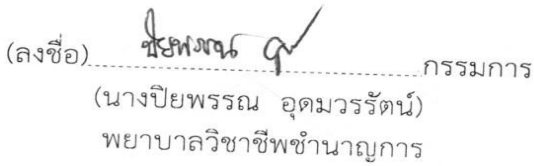 (ลงชื่อ) ปิยพรรณ อุ กรรมการ
(นางปิยพรรณ อุดมวรรัตน์)
พยาบาลวิชาชีพชำนาญการ